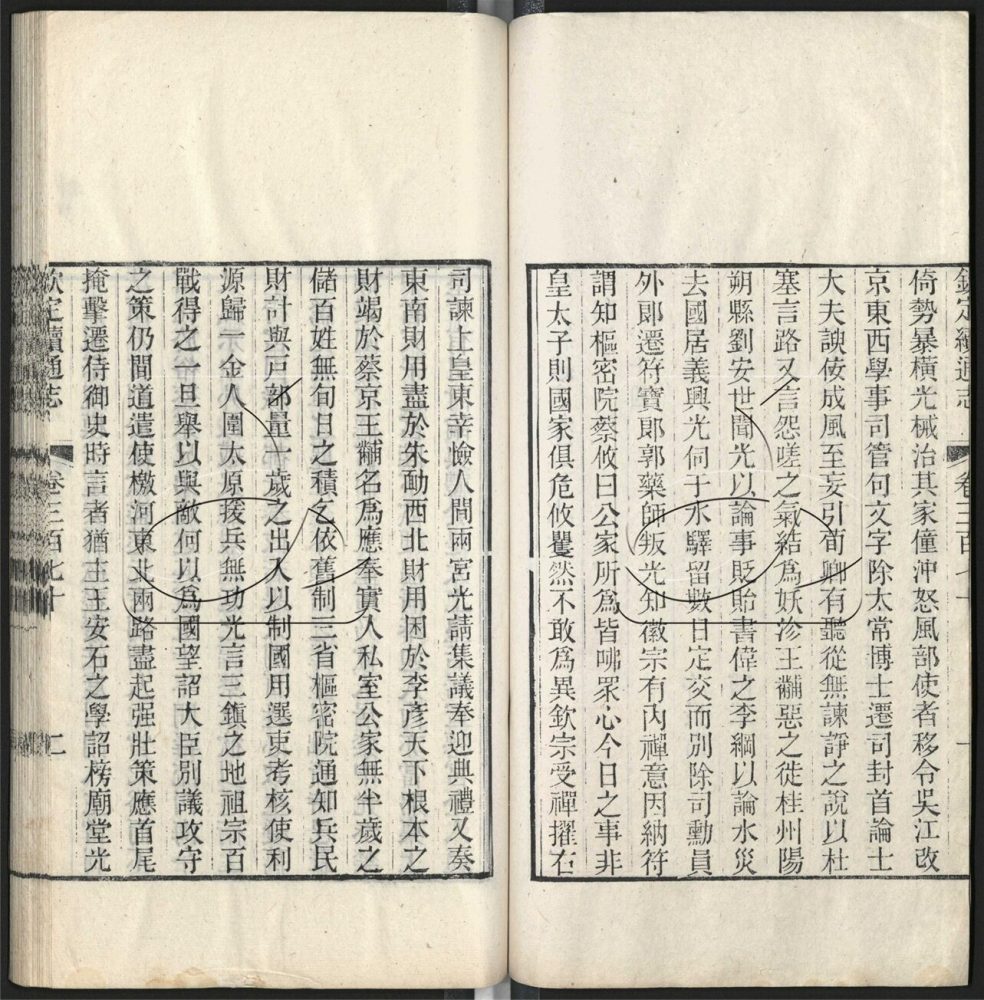 欽定續通志 卷三百七十 一
倚勢暴横光械治其家僮沖怒風部使者移令吳江改
京東西學事司管句文字除太常博士遷司封首論士
大夫諛佞成風至妄引荀卿有聽從無諫諍之說以杜
塞言路又言怨嗟之氣結爲妖沴王黼惡之徙桂州陽
朔縣劉安世聞光以論事貶貽書偉之李綱以論水災
去國居義興光伺于水驛留數日定交而別除司勳員
外郎遷符寶郎郭藥師叛光知徽宗有內禪意因納符
謂知樞密院蔡攸曰公家所爲皆咈眾心今日之事非
皇太子則國家俱危攸矍然不敢爲異欽宗受禪擢右
司諫上皇東幸憸人間兩宮光請集議奉迎典禮又奏
東南財用盡於朱勔西北財用困於李彦天下根本之
財竭於蔡京王黼名爲應奉實入私室公家無半歲之
儲百姓無旬日之積乞依舊制三省樞密院通知兵民
財計與戸部量一歲之出入以制國用選吏考核使利
源歸一金人圍太原援兵無功光言三鎭之地祖宗百
戰得之一旦舉以與敵何以爲國望詔大臣別議攻守
之策仍間道遣使檄河東北兩路盡起强壯策應首尾
掩擊遷侍御史時言者猶主王安石之學詔榜廟堂光
欽定續通志 卷三百七十 二